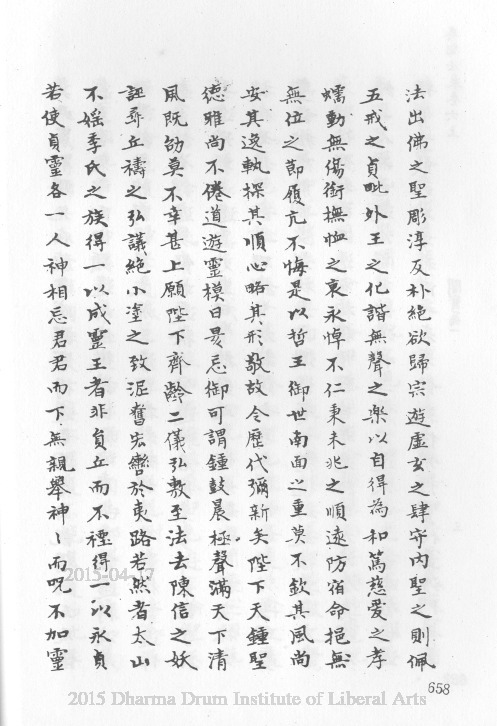 法出佛之聖彫淳反朴絕欲歸宗遊虛玄之肆守內聖之則佩
五戒之貞毗外王之化諧無聲之樂以自得為和篤慈愛之孝
蠕動無傷銜撫恤之哀永悼不仁秉未兆之順遠防宿命挹無
無位之節履亢不悔是以哲王御世南面之重莫不欽其風尚
安其逸軌探其順心略其形敬故令歷代彌新矣陛下天鍾聖
德雅尚不倦道遊靈模日昃忌御可謂鍾鼓晨極聲滿天下清
風既劭莫不幸甚上願陛下齊齡二儀弘敷至法去陳信之妖
誣尋丘禱之弘議絕小塗之致泥奮宏轡於夷路若然者太山
不婬季氏之族得一以成靈王者非員丘而不禋得一以永貞
若使貞靈各一人神相忌君君而下無親舉神〻而呪不加靈
658
2015-04-17
2015 Dharma Drum Institute of Liberal Arts